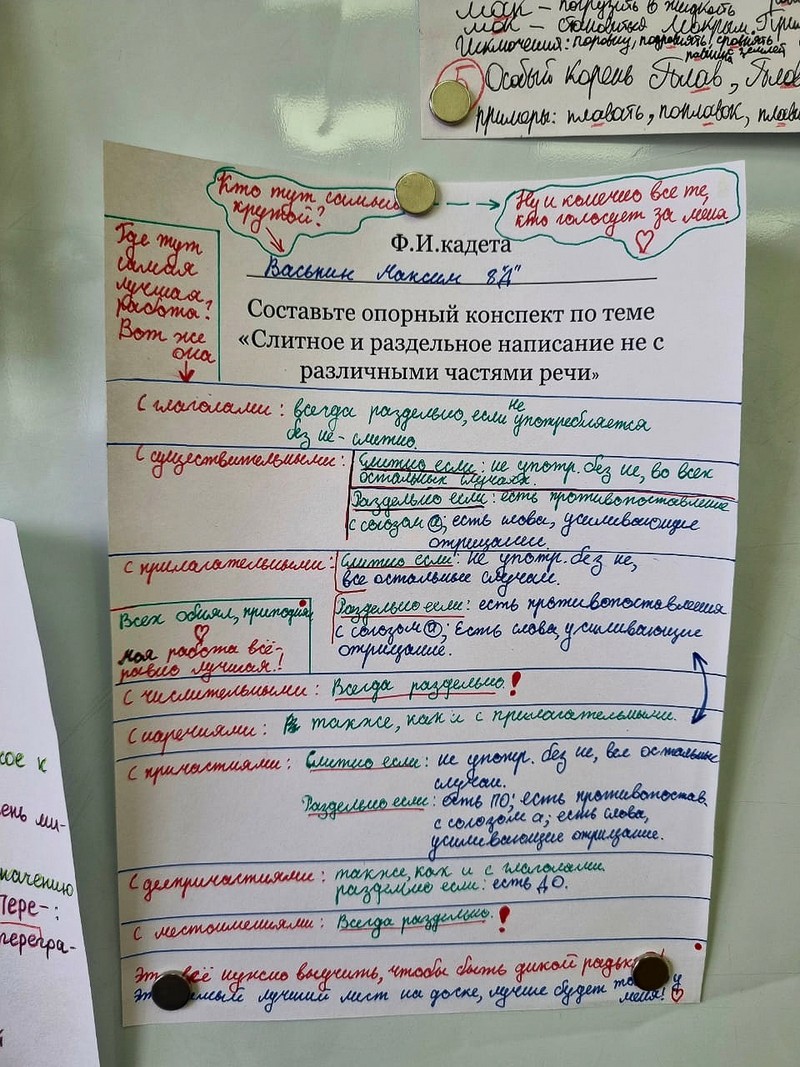 мак – погрузить в жидкость
мок – становиться мокрым.
Исключения: поровну,
Особый корень Плав, Плов
примеры: плавать, поплавок,
Кто тут самый
крутой?
Ну и конечно все те,
кто голосует за меня
Где тут
самая
лучшая
работа?
Вот же
она
Ф.И.кадета
Васькин Максим 8"Д"
Составьте опорный конспект по теме
«Слитное и раздельное написание не с
различными частями речи»
С глаголами: всегда раздельно, если не употребляется
без не - слитно.
С существительными: Слитно если: не употр. без не, во всех
остальных случаях.
Раздельно если: есть противопоставление
с союзом а; есть слова, усиливающие
отрицание.
С прилагательными: Слитно если: не употр. без не,
все остальные случаи.
Раздельно если: есть противопоставления
с союзом а; Есть слова, усиливающие
отрицание.
Всех обнял, приподнял
моя работа всё-
равно лучшая!
С числительными: Всегда раздельно!
С наречиями: также, как и с прилагательными.
С причастиями: Слитно если: не употр. без не, все остальные
случаи.
Раздельно если: есть ПО; есть противопостав.
с союзом а; есть слова,
усиливающие отрицание.
С деепричастиями: также, как и с глаголами.
раздельно если: есть ДО.
С местоимениями: Всегда раздельно!
всё нужно выучить, чтобы быть дикой
лучший лист на доске, лучше будет у
меня!
ое к
ень ми-
начению
Пере-:
перегра-